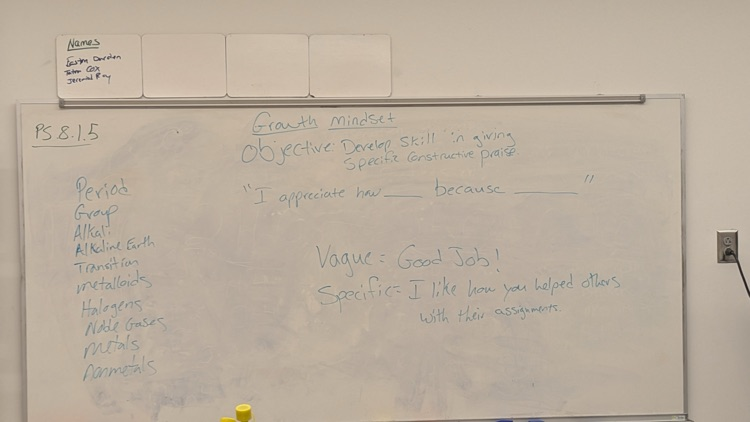 Names
Easton
Cox
Jeremiah Ray
PS.8.1.5
Growth mindset
Objective: Develop skill in giving
specific constructive praise
"I appreciate how ____ because ________"
Period
Group
Alkali
Alkaline Earth
Transition
metalloids
Halogens
Noble Gases
Metals
nonmetals
Vague = Good Job!
Specific = I like how you helped others
with their assignments.